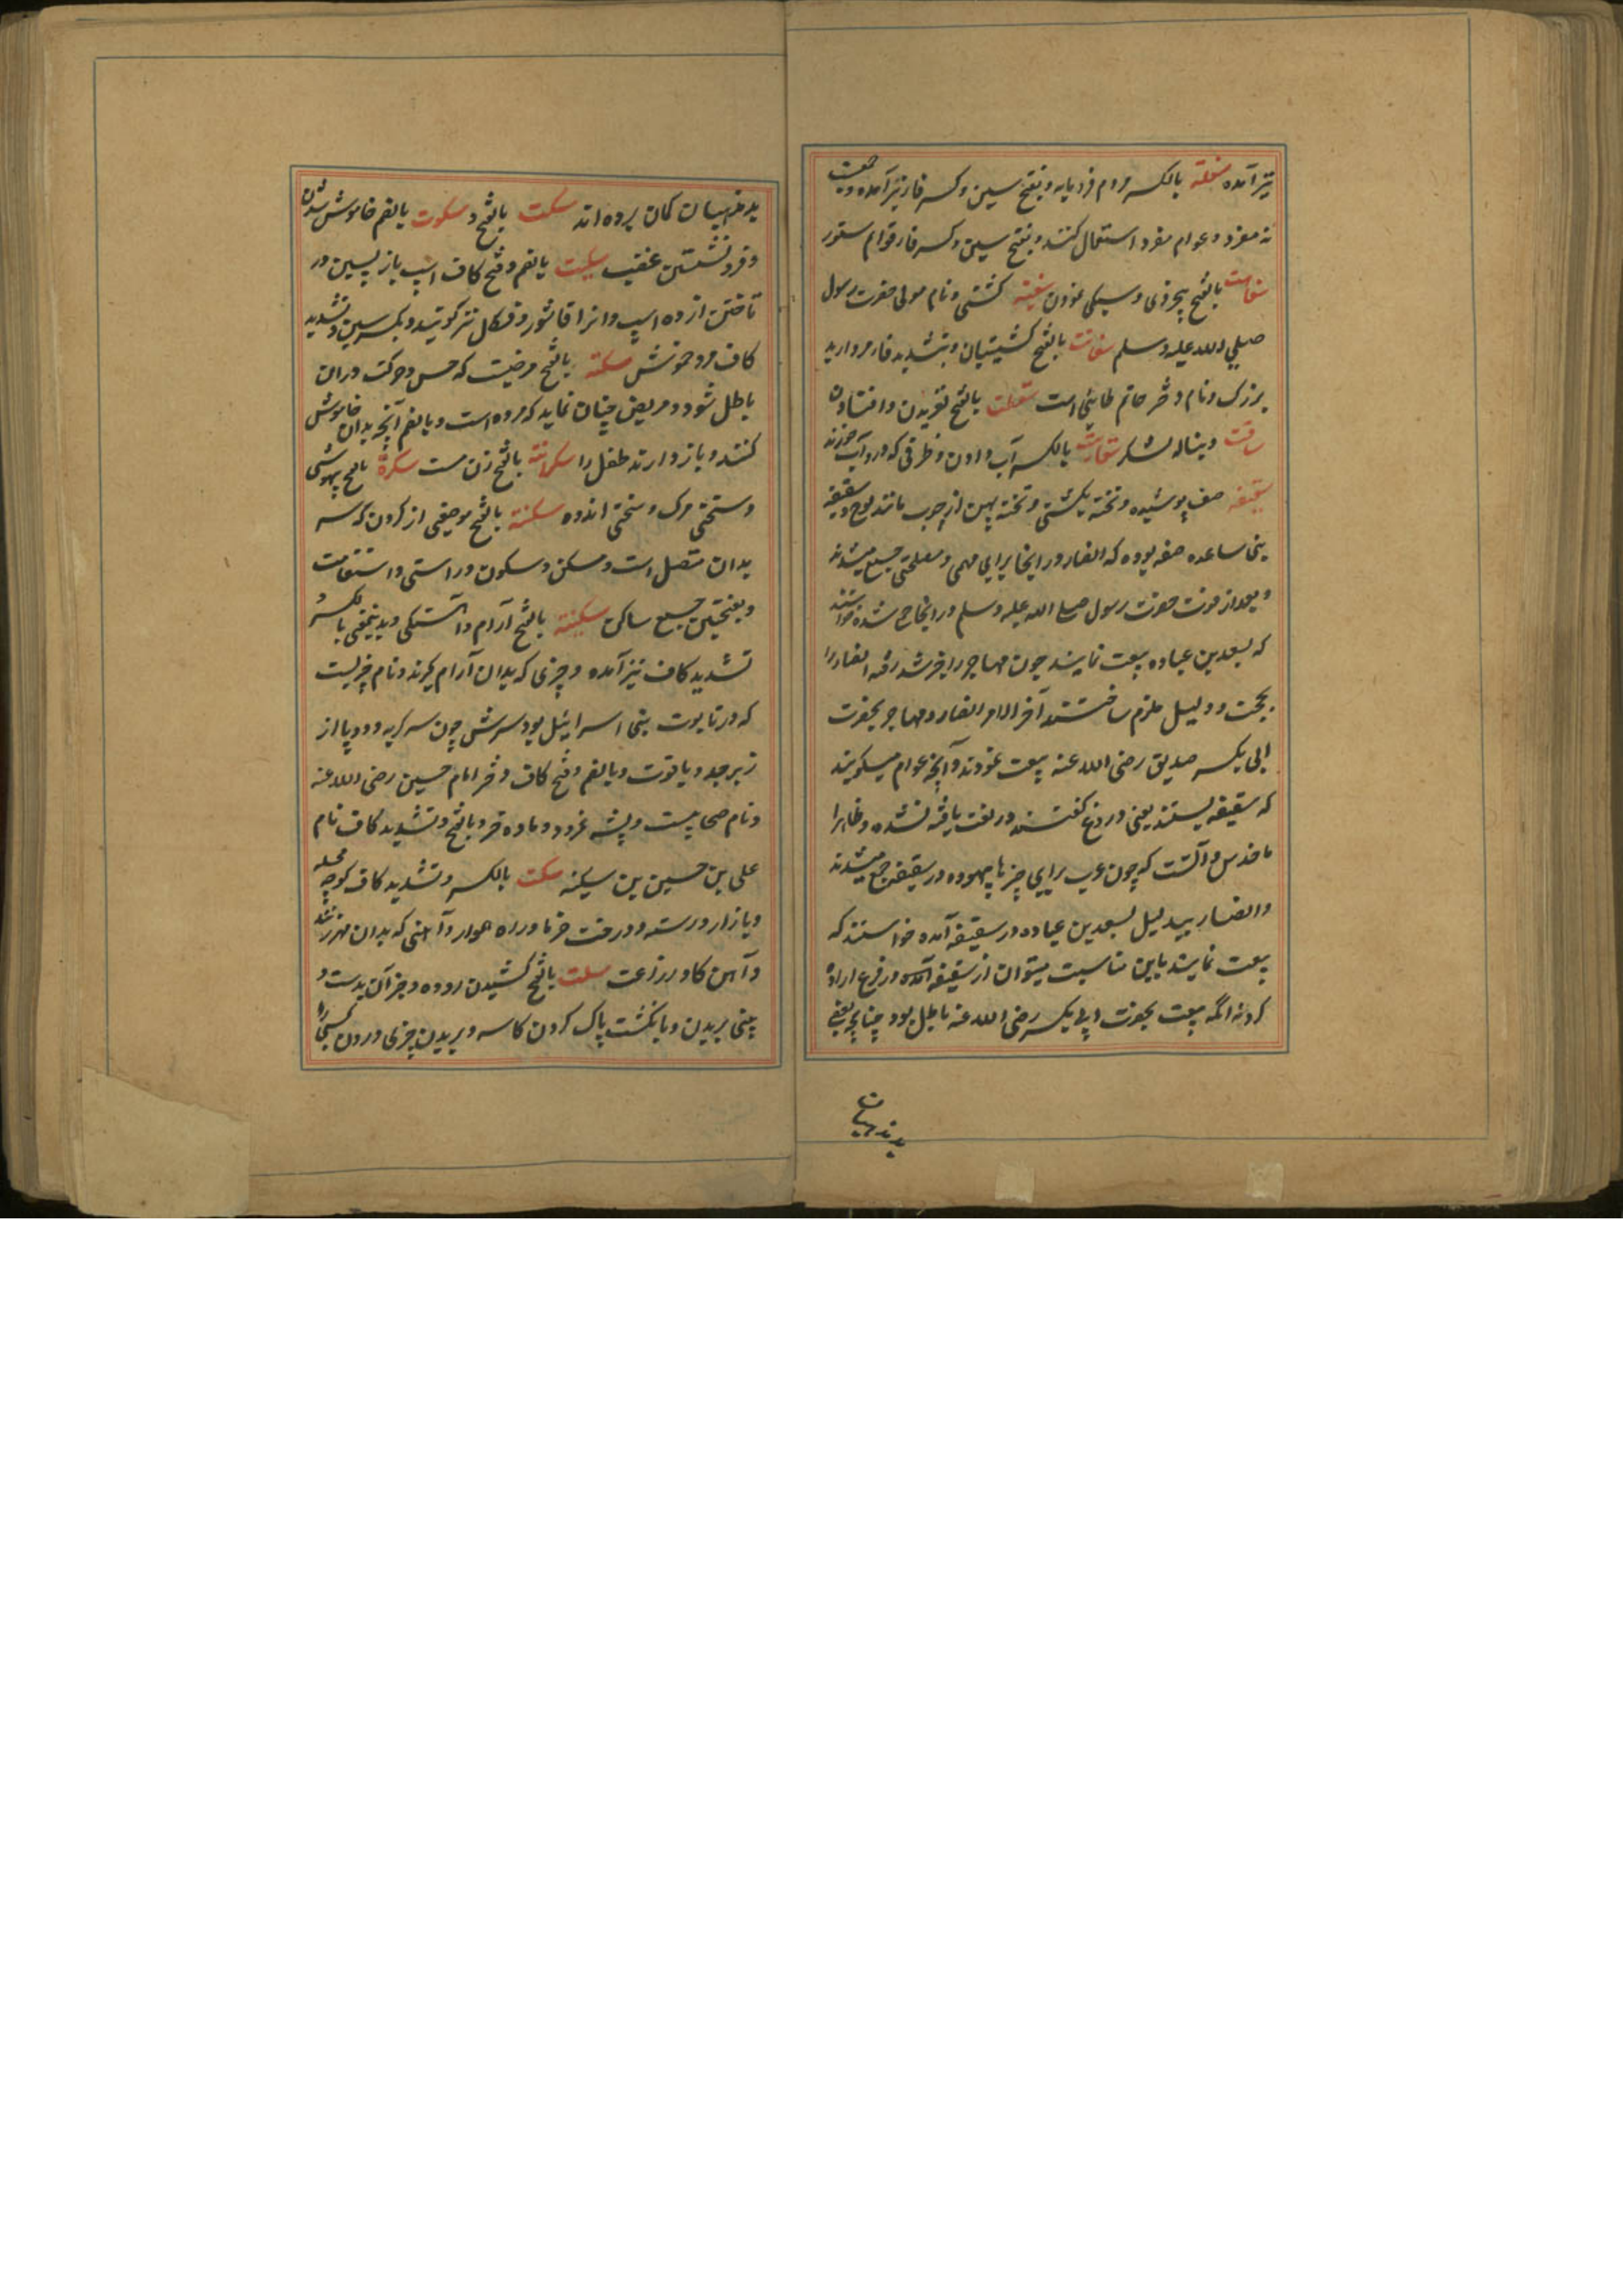 نیز آمده سفله بالکسر مردم فرومایه و بفتح سین و کسر فا نیز آمده و جمعیت
نه مفرد و عوام مفرد استعمال کنند و بفتح سین و کسر فا قوائم ستور
سفاهت بالفتح بیخردی و سبکی نمودن سفینه کشتی و نام مولی حضرت رسول
صلی الله علیه وسلم سفانت بالفتح کشتیبان و بتشدید فا مروارید
بزرک و نام دختر حاتم طائی است سقطت بالفتح لغزیدن و افتادن
ساقت دنباله لشکر سقایت بالکسر آب دادن و ظرفی که درو آب خورند
سقیفه صفه پوشیده و تخته کشتی و تخته پهن از چوب مانند لوح و سقیفه
بنی ساعده صفه بوده که انصار در اینجا برای مهمی و مصلحتی جمع میشدند
و بعد از فوت حضرت رسول صلی الله علیه وسلم در اینجا جمع شده خواستند
که بسعد بن عباده بیعت نمایند چون مهاجر را خبر شد رفته انصار را
بحجت و دلیل ملزم ساختند آخر الامر انصار و مهاجر بحضرت
ابی بکر صدیق رضی الله عنه بیعت نمودند و آنچه عوام میکویند
که سقیفه بستند یعنی دروغ کفتند در لغت یافته نشده و ظاهرا
ماخذش آنست که چون عرب برای چیزها بیهوده در سقیفه جمع میشدند
و انصار بیدلیل بسعد بن عباده در سقیفه آمده خواستند که
بیعت نمایند باین مناسبت میتوان از سقیفه آمده دروغ اراده
کردند انکه بیعت بحضرت ابی بکر رضی الله عنه باطل بود چنانچه بعضی
بد مذهبان
بد مذهبان کمان برده اند سکت بالفتح و سکوت بالضم خاموش شدن
و فرو نشستن غضب سکیت بالضم و فتح کاف اسپ باز پسین در
تاختن از ده اسپ و انرا قاشور و فسکل نیز کویند و بکسر سین و تشدید
کاف مرد خموش سکته بالفتح مرضیت که حس و حرکت دران
باطل شود و مریض چنان نماید که مرده است و بالضم آنچه بدان خاموش
کنند و باز دارند طفل را سکرانة بالفتح زن مست سکرة بالفتح بیهوشی
و سختی مرک و سختی اندوه سکنة بالفتح موضعی از کردن که سر
بدان متصل است و مسکن و سکون و راستی و استقامت
و بفتحتین جمع ساکن سکینة بالفتح آرام و آهستکی و بدینمعنی بالکسر و
تشدید کاف نیز آمده و چیزی که بدان آرام کیرند و نام چیزیست
که در تابوت بنی اسرائیل بود سرش چون سر کربه و دو پا از
زبرجد و یاقوت و بالضم و فتح کاف دختر امام حسین رضی الله عنه
و نام صحابیست و پشه نمرود و ماده خر و بالفتح و تشدید کاف نام
علی بن حسین بن سکینه سکت بالکسر و تشدید کاف کوچه محله
و بازار و رسته و درخت خرما و راه هموار و آهنی که بدان مهر زنند
و آهن کاو زراعت سلت بالفتح کشیدن روده و جز آن بدست و
بینی بریدن و بانکشت پاک کردن کاسه و بریدن چیزی و زدن کسی را